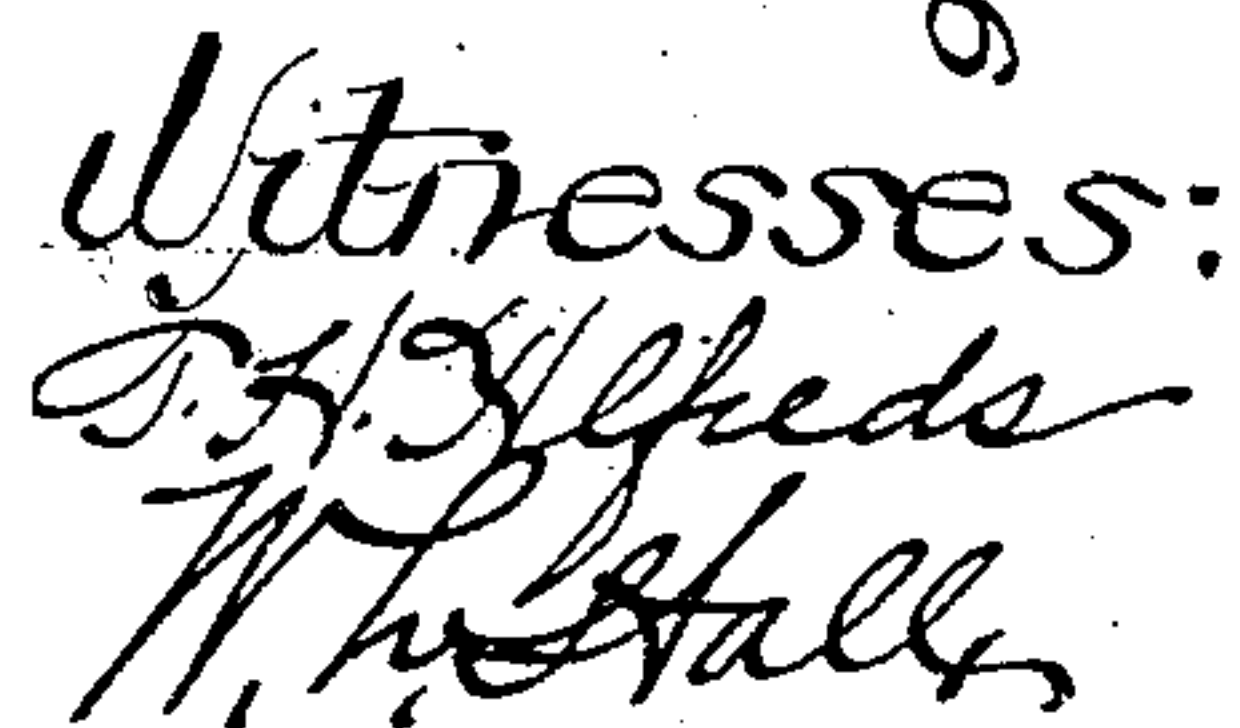 Witnesses:
T. H. Alfreds
W. Hall